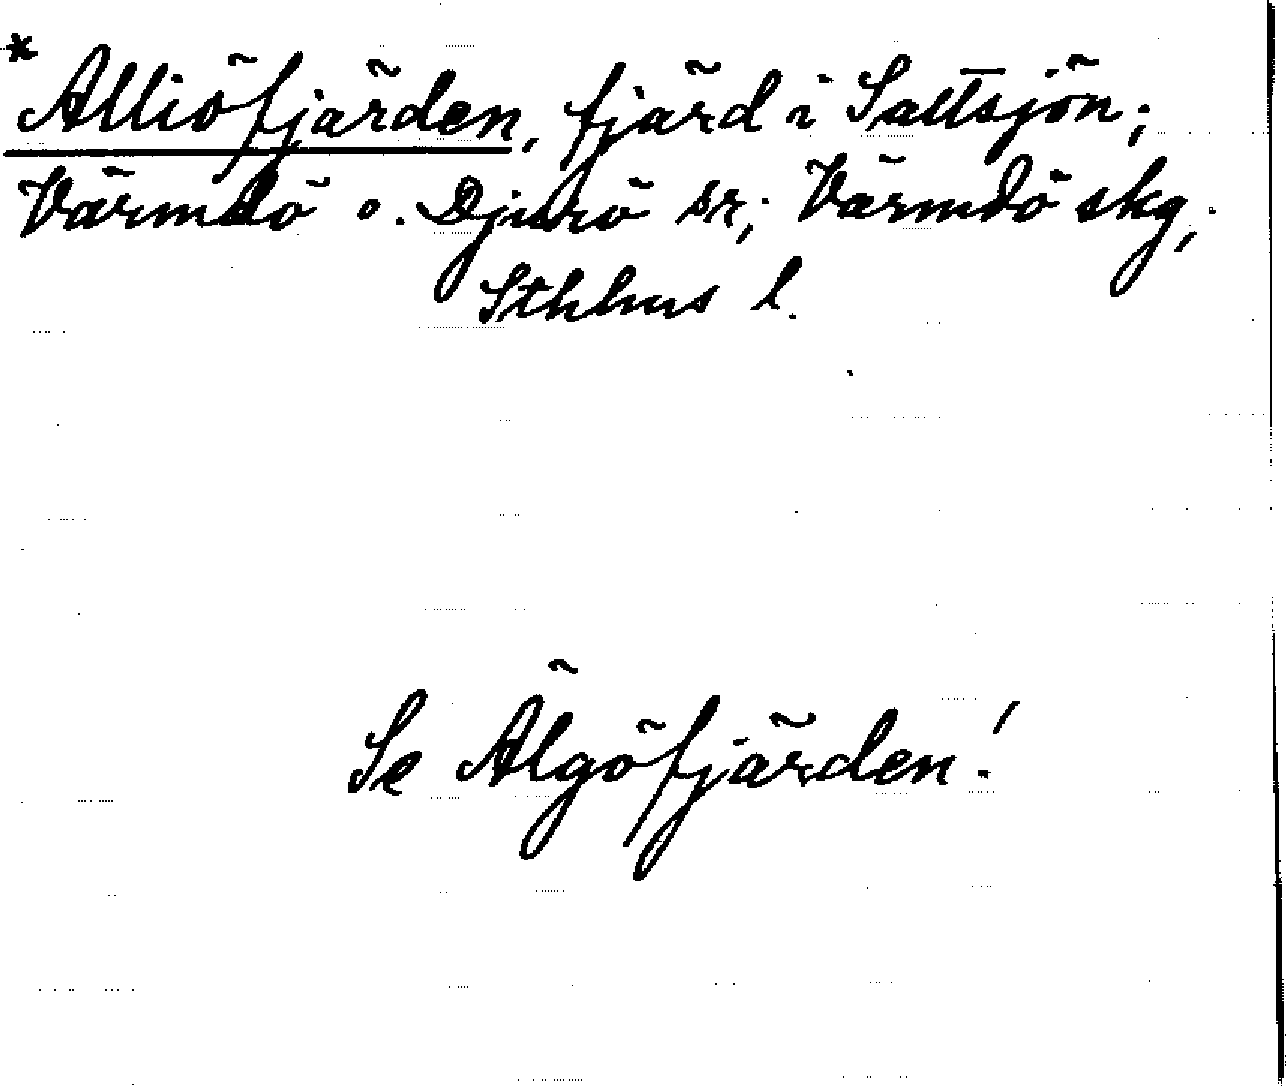 * Alliöfjärden, fjärd i Saltsjön;
Värmdö o. Djurö sr; Värmdö skg,
Sthlms l.
Se Älgöfjärden!